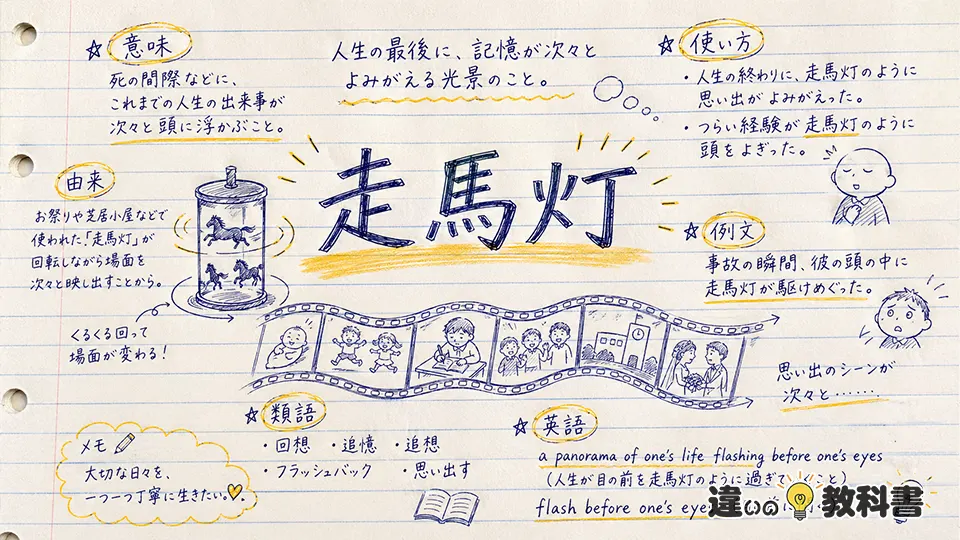 ☆ 意味
死の間際などに、
これまでの人生の出来事が
次々と頭に浮かぶこと。
人生の最後に、記憶が次々と
よみがえる光景のこと。
☆ 使い方
・人生の終わりに、走馬灯のように
思い出がよみがえった。
・つらい経験が走馬灯のように
頭をよぎった。
走馬灯
由来
お祭りや芝居小屋などで
使われた「走馬灯」が
回転しながら場面を
次々と映し出すことから。
くるくる回って
場面が変わる!
☆ 例文
事故の瞬間、彼の頭の中に
走馬灯が駆けめぐった。
思い出のシーンが
次々と……
☆ 類語
・回想 ・追憶 ・追想
・フラッシュバック ・思い出す
☆ 英語
a panorama of one's life flashing before one's eyes
(人生が目の前を走馬灯のように過ぎて こと)
flash before one's
メモ
大切な日々を、
一つ一つ丁寧に生きたい。
違いの教科書